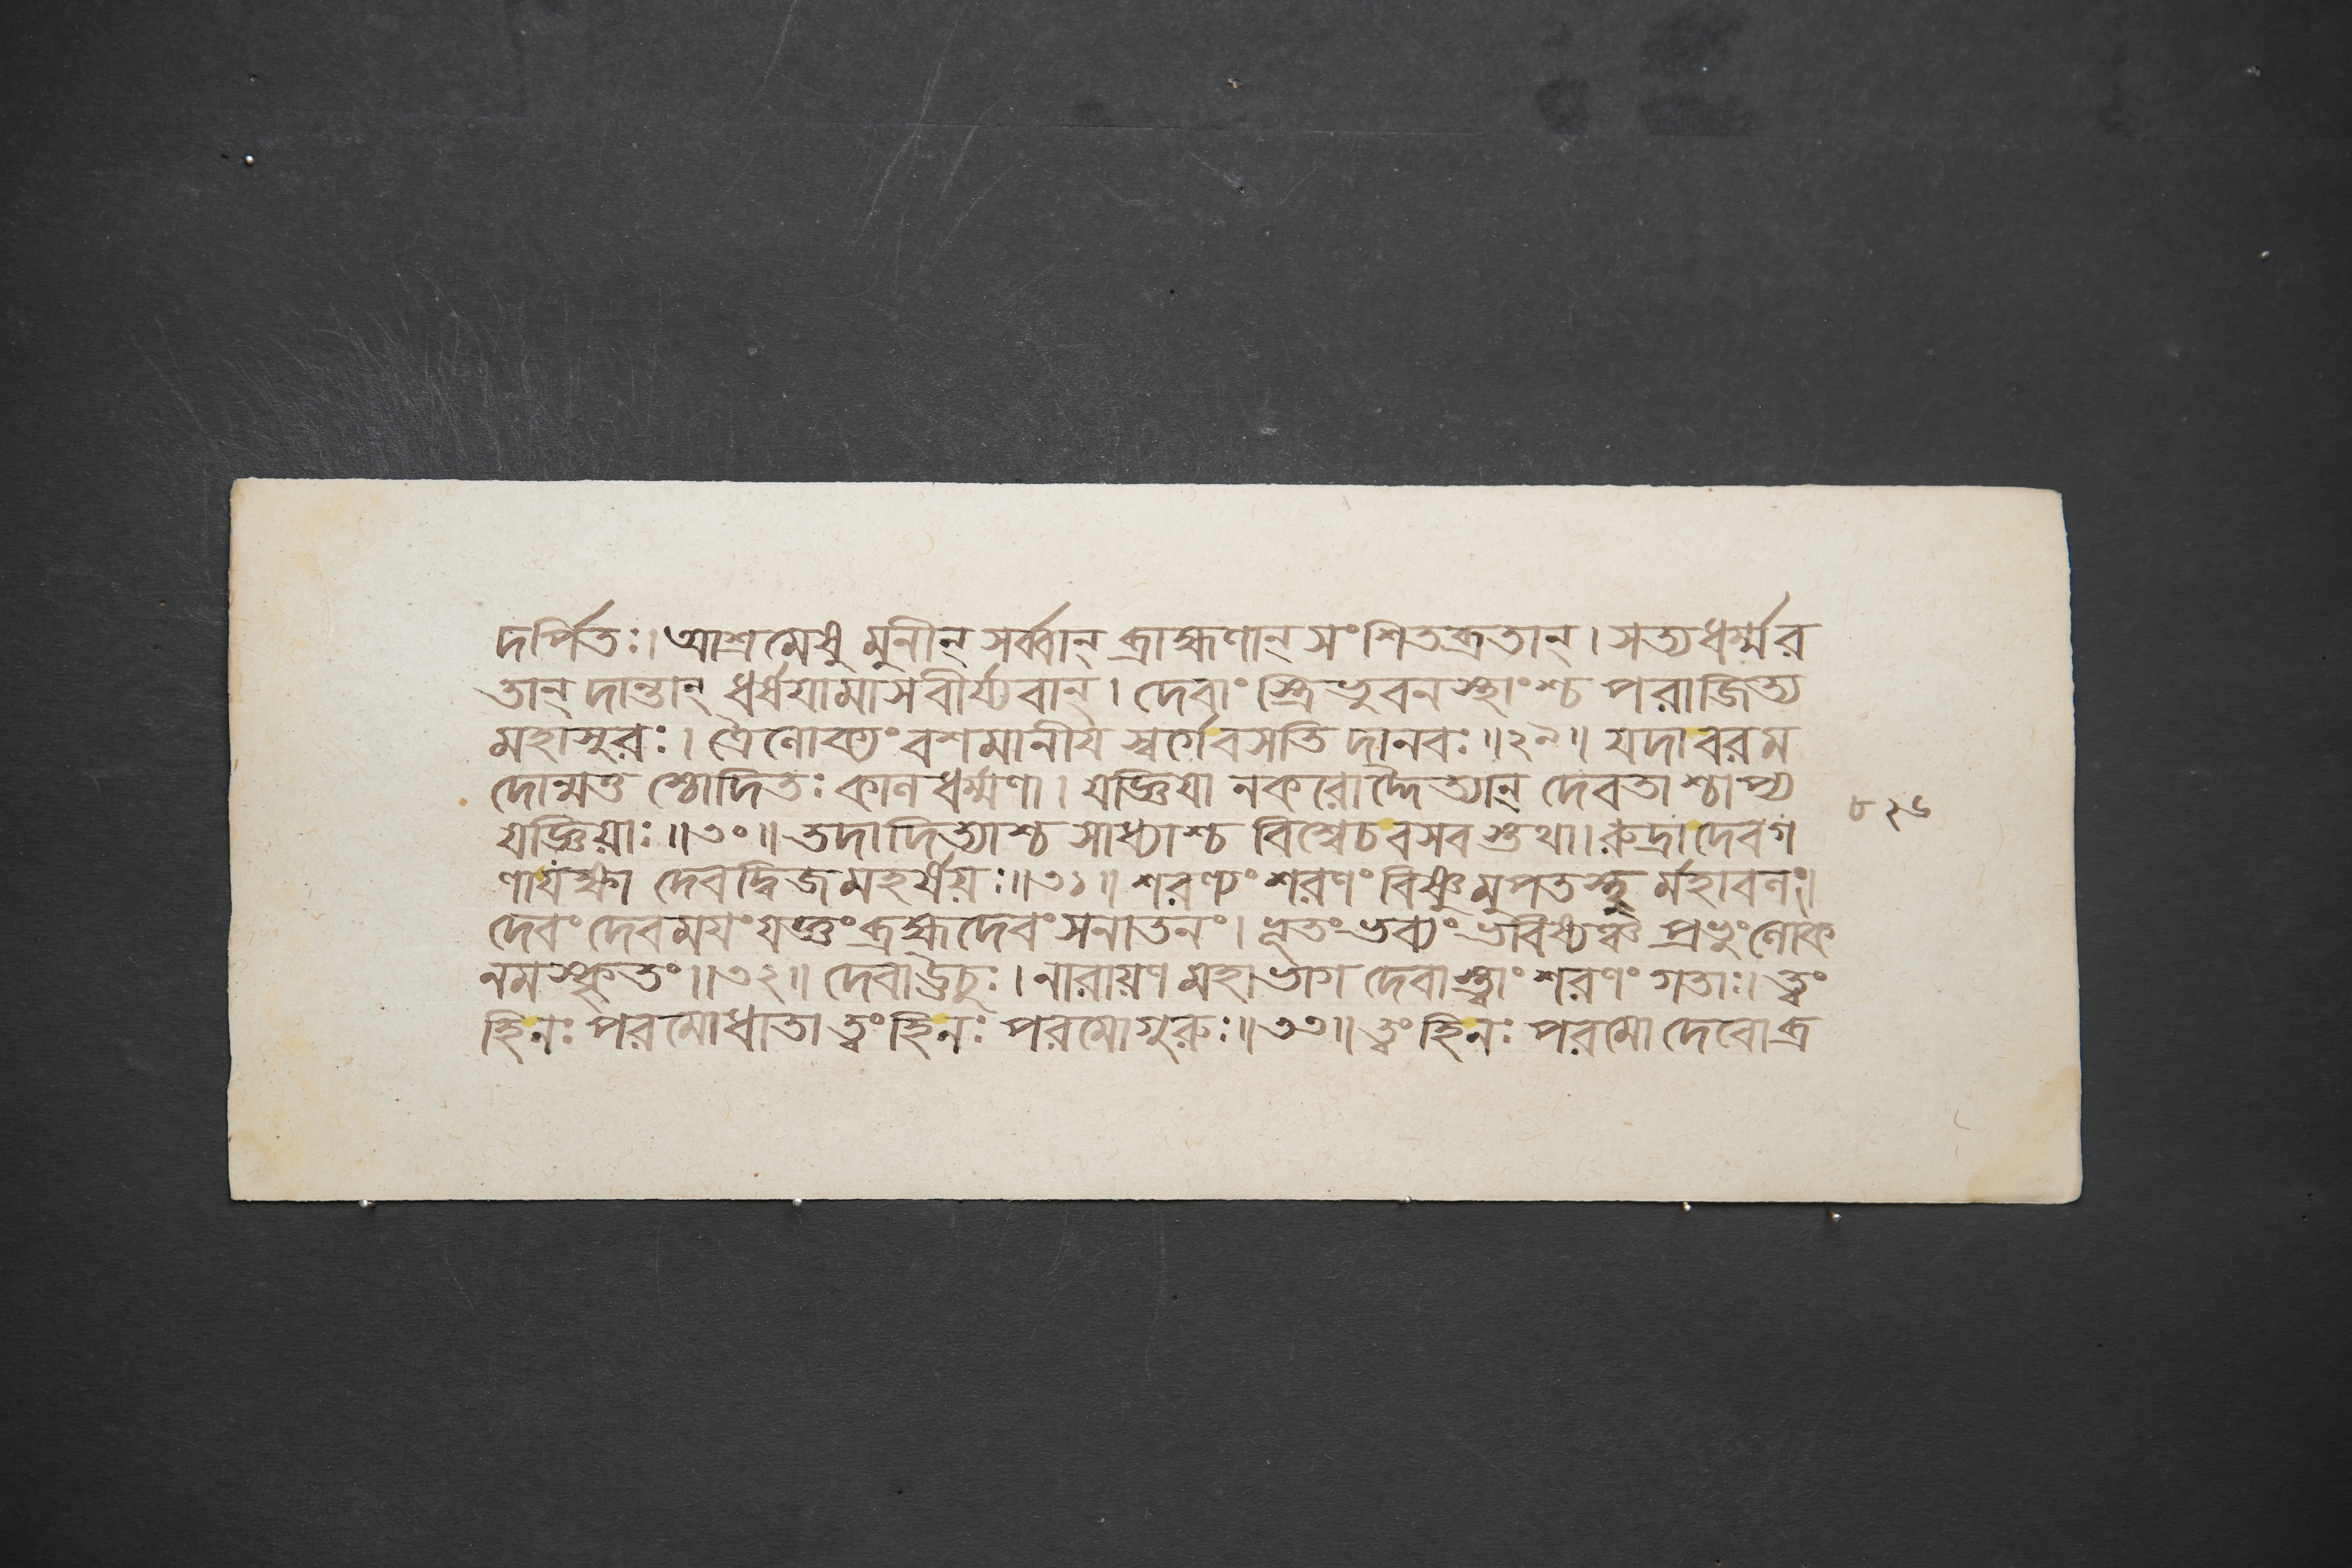 দর্পিতঃ। আশ্রমেষু মুনীন্ সর্ব্বান্ ব্রাহ্মণান্ সংশিতব্রতান্। সত্যধর্ম্মর
তান্ দান্তান্ ধর্ষয়ামাসবীর্য্যবান্। দেবাং স্ত্রিভুবনস্থাংশ্চ পরাজিত্য
মহাসুরঃ। ত্রৈলোক্যং বশমানীয স্বর্গেবসতি দানবঃ॥২৯॥ যদাবরম
দোন্মত্ত শ্চোদিতঃ কালধর্ম্মণা। যজ্ঞিযা নকরোদ্দৈত্যান্ দেবতাশ্চাপ্য
যজ্ঞিয়াঃ॥৩০॥ তদাদিত্যাশ্চ সাধ্যাশ্চ বিশ্বেচবসব স্তুথা। রুদ্রাদেবগ
ণাযক্ষা দেবদ্বিজমহর্ষয়ঃ॥৩১॥ শরণ্যং শরণং বিষ্ণুমুপতস্থু র্মহাবলং।
দেবং দেবময়ং যজ্ঞং ব্রহ্মদেবং সনাতনং। ভূতং ভব্যং ভবিষ্যঞ্চ প্রভুং লোক
নমস্কৃতং॥৩২॥ দেবাঊচুঃ। নারায়ণ মহাভাগ দেবাস্ত্বাং শরণং গতাঃ। ত্বং
হিনঃ পরমোধাতা ত্বং হিনঃ পরমোগুরুঃ॥৩৩॥ ত্বং হিনঃ পরমো দেবোব্র
৮২৬